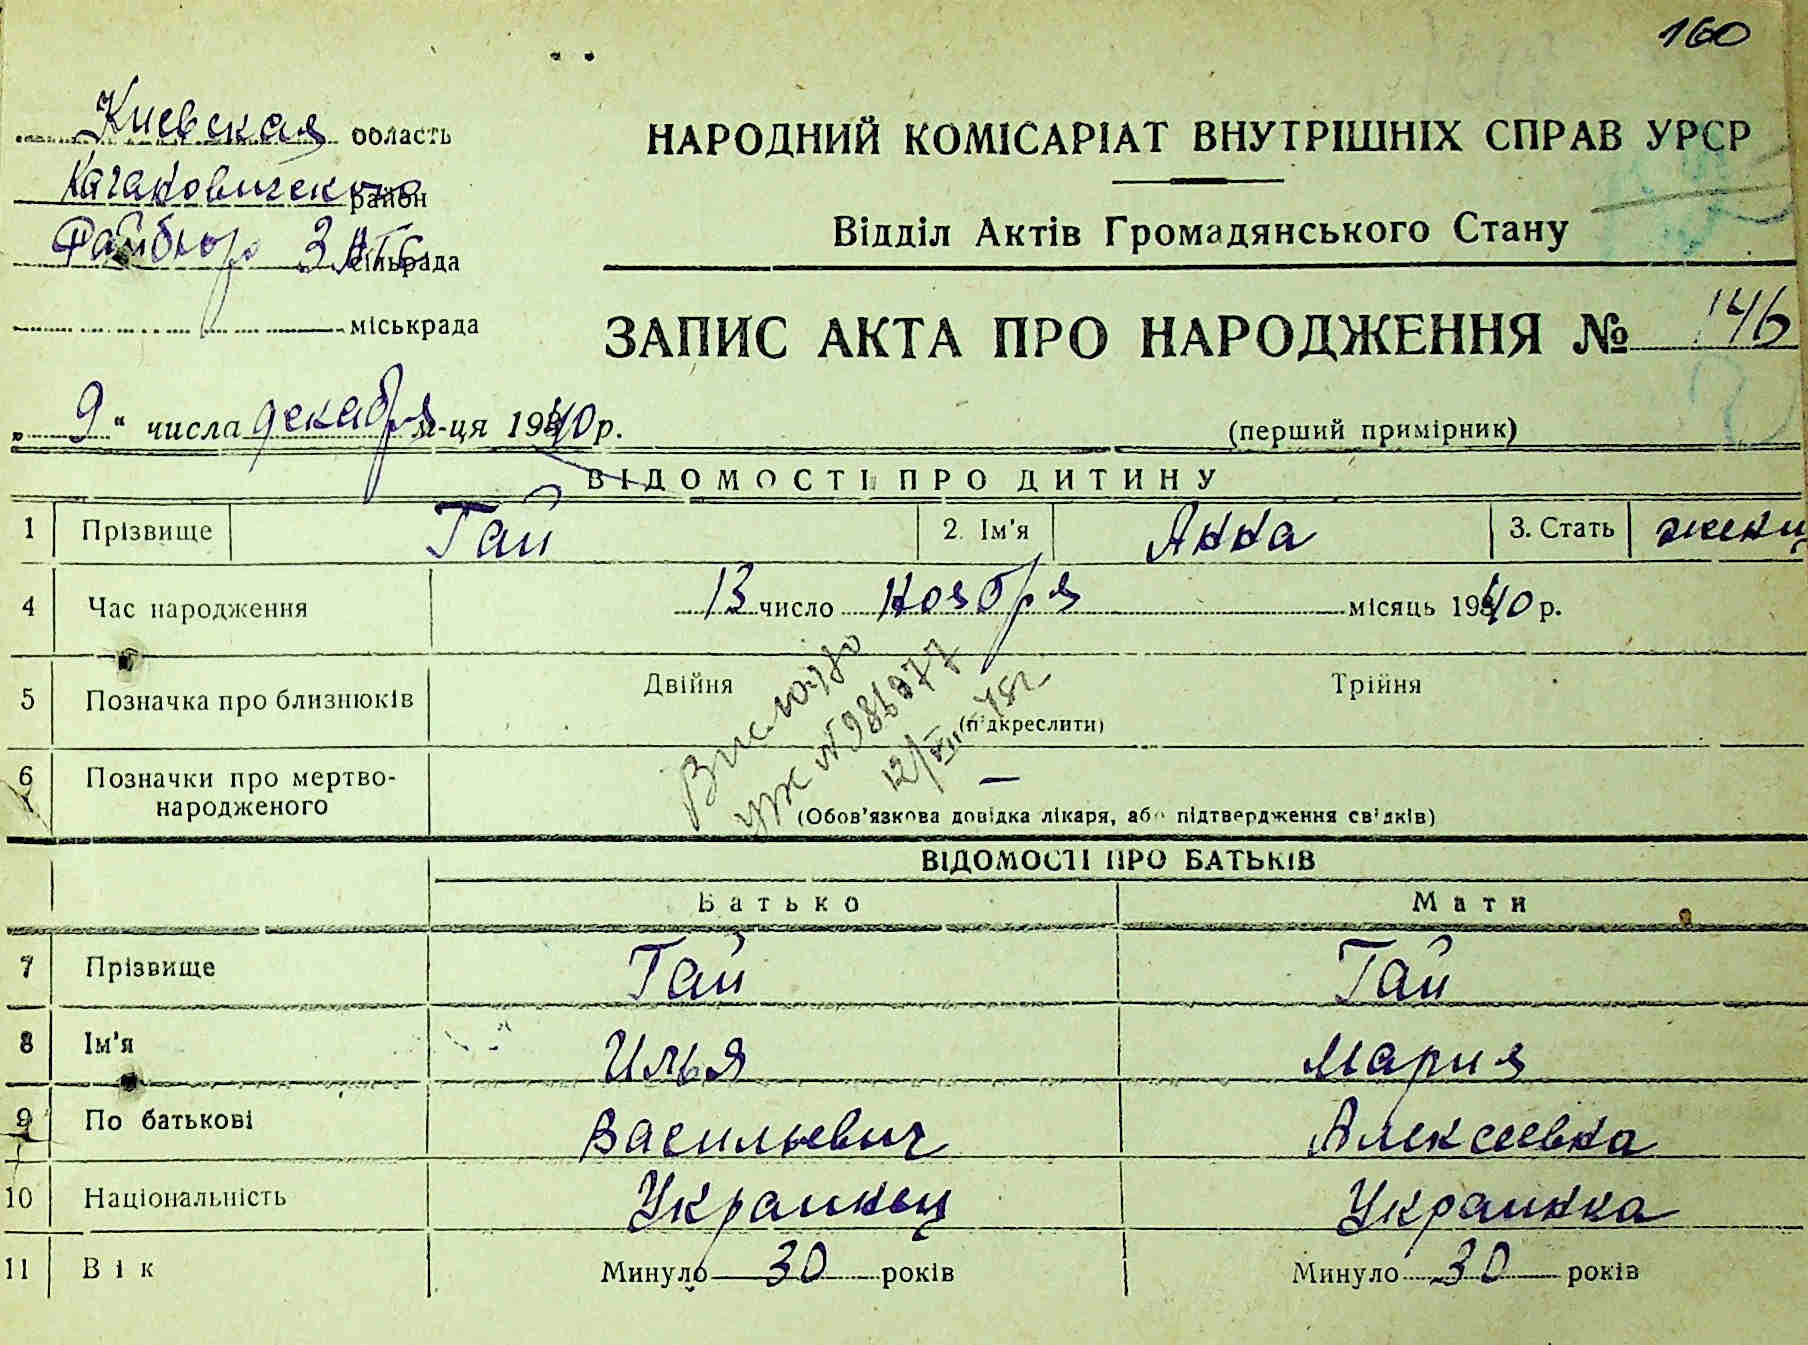 160
Киевская область
Кагановического район
Райбюро ЗАГС сільрада
міськрада
НАРОДНИЙ КОМІСАРІАТ ВНУТРІШНІХ СПРАВ УРСР
Відділ Актів Громадянського Стану
ЗАПИС АКТА ПРО НАРОДЖЕННЯ № 146
„ 9 “ числа декабря м-ця 1940 р.
(перший примірник)
ВІДОМОСТІ ПРО ДИТИНУ
1 Прізвище Гай 2. Ім'я Анна 3. Стать женщ
4 Час народження 13 число ноября місяць 1940 р.
5 Позначка про близнюків Двійня Трійня
(підкреслити)
6 Позначки про мертво-
народженого —
(Обов'язкова довідка лікаря, або підтвердження свідків)
№ 986977
12/VII 78г
ВІДОМОСТІ ПРО БАТЬКІВ
Батько Мати
7 Прізвище Гай Гай
8 Ім'я Илья Мария
9 По батькові Васильевич Алексеевна
10 Національність Украинец Украинка
11 Вік Минуло 30 років Минуло 30 років